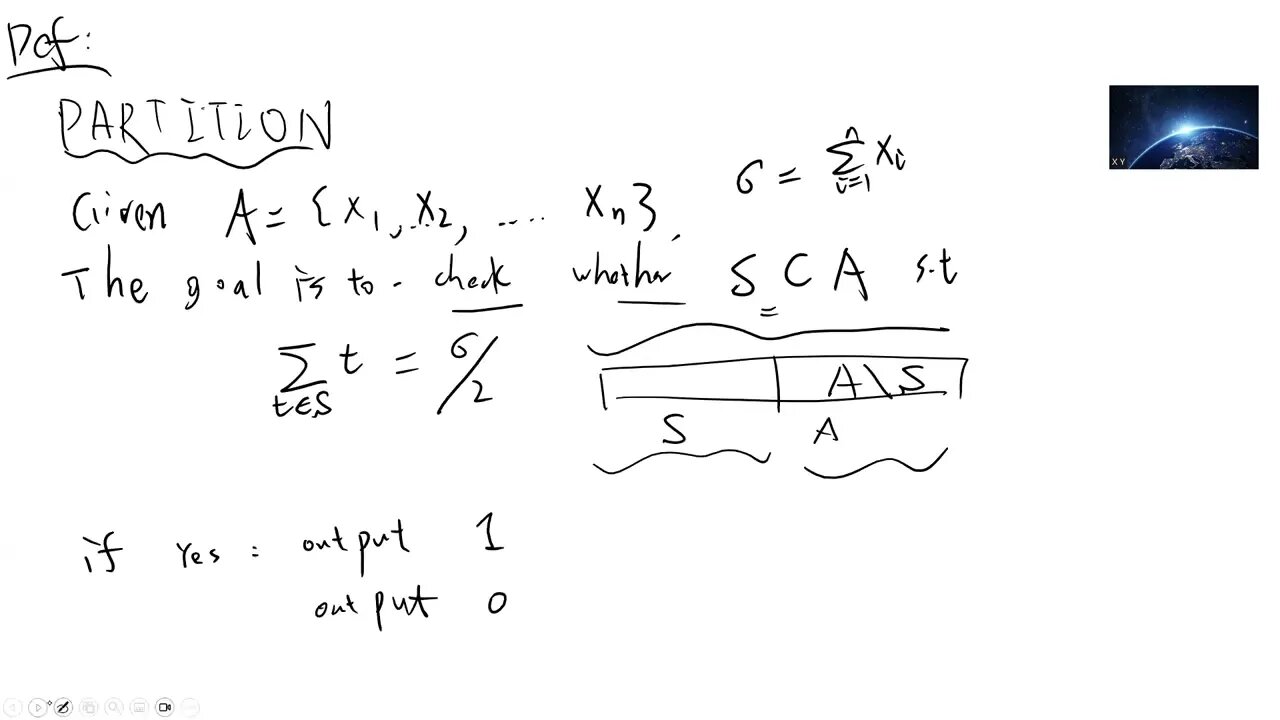 Def:
PARTITION
Given A = {x₁, x₂, .... xₙ}, σ = ∑ⁿᵢ₌₁ xᵢ
The goal is to check whether S ⊂ A s.t
∑_{t∈S} t = σ/2
A\S
S A
if Yes : output 1
output 0
XY